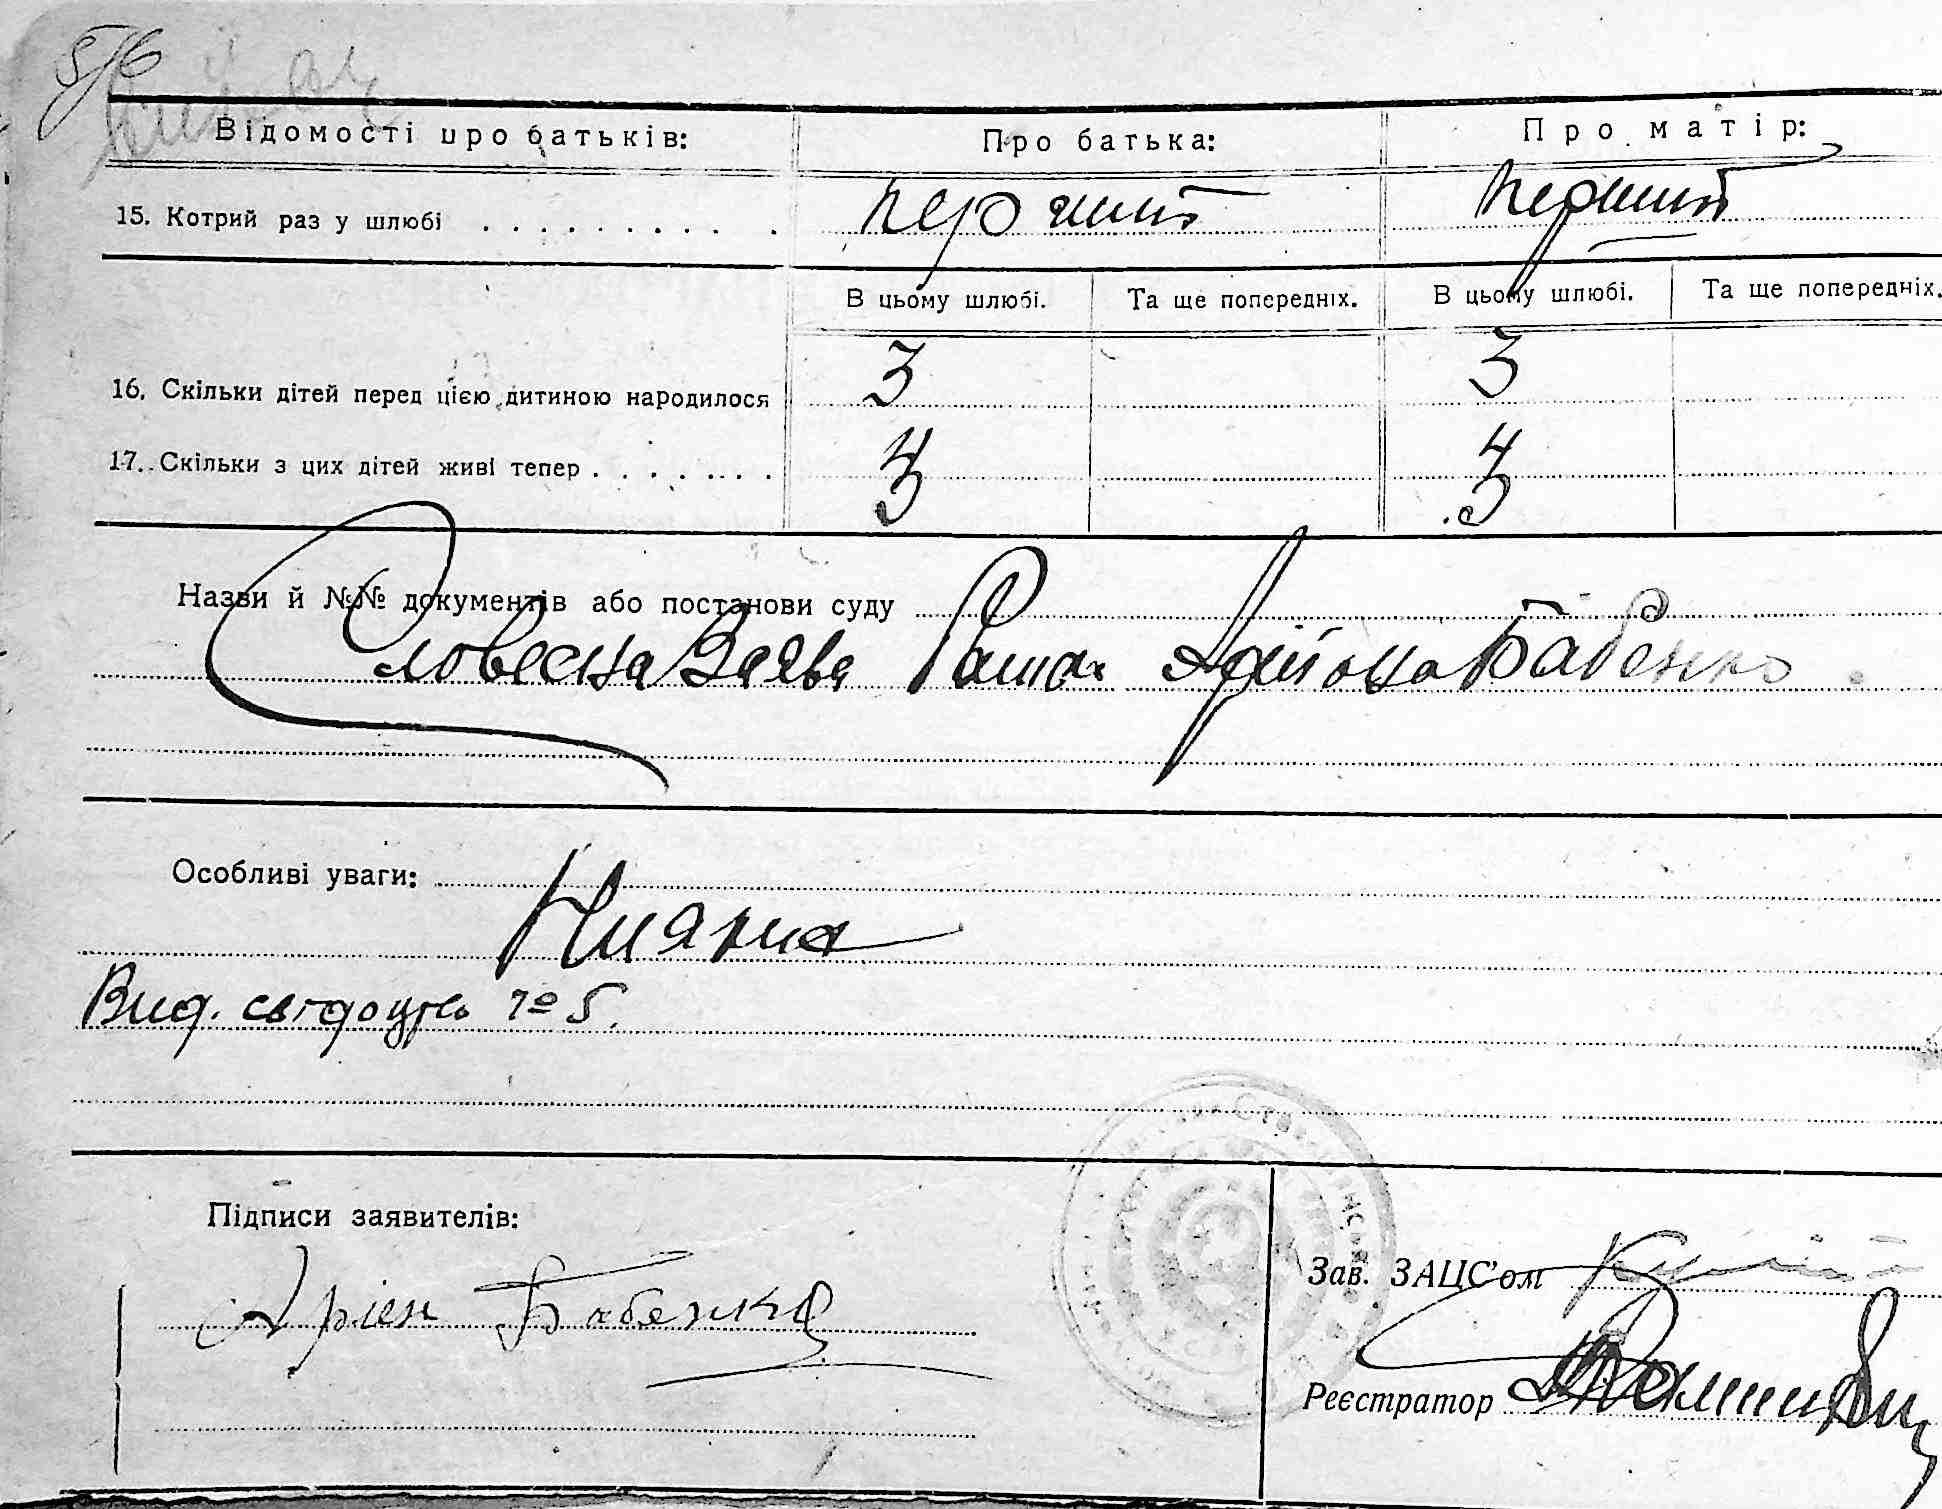 5/6
Відомості про батьків: Про батька: Про матір:
15. Котрий раз у шлюбі . . . . . . . . . . перший перший
В цьому шлюбі. Та ще попередніх. В цьому шлюбі. Та ще попередніх.
16. Скільки дітей перед цією дитиною народилося 3 3
17. Скільки з цих дітей живі тепер . . . . . . . 3 3
Назви й №№ документів або постанови суду
Словесна Заява Бабенко.
Особливі уваги:
Нияких
Вид. свідоцтво № 5.
Підписи заявителів:
Зав. ЗАЦС'ом
Бабенко
Реєстратор